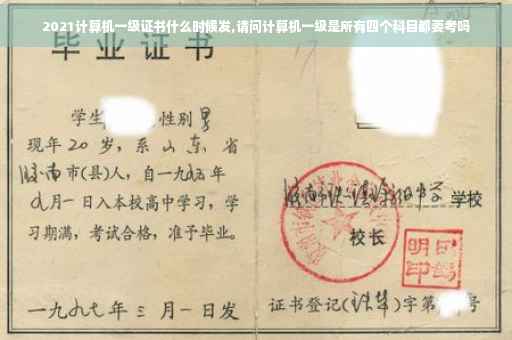 2021计算机一级证书什么时候发,请问计算机一级是所有四个科目都要考吗
毕业证书
学生 性别男
现年20岁,系山东省
济南市(县)人,自一九九五年
九月一日入本校高中学习,学
习期满,考试合格,准予毕业。
学校
校长
一九九七年三月一日发
证书登记( )字第 号